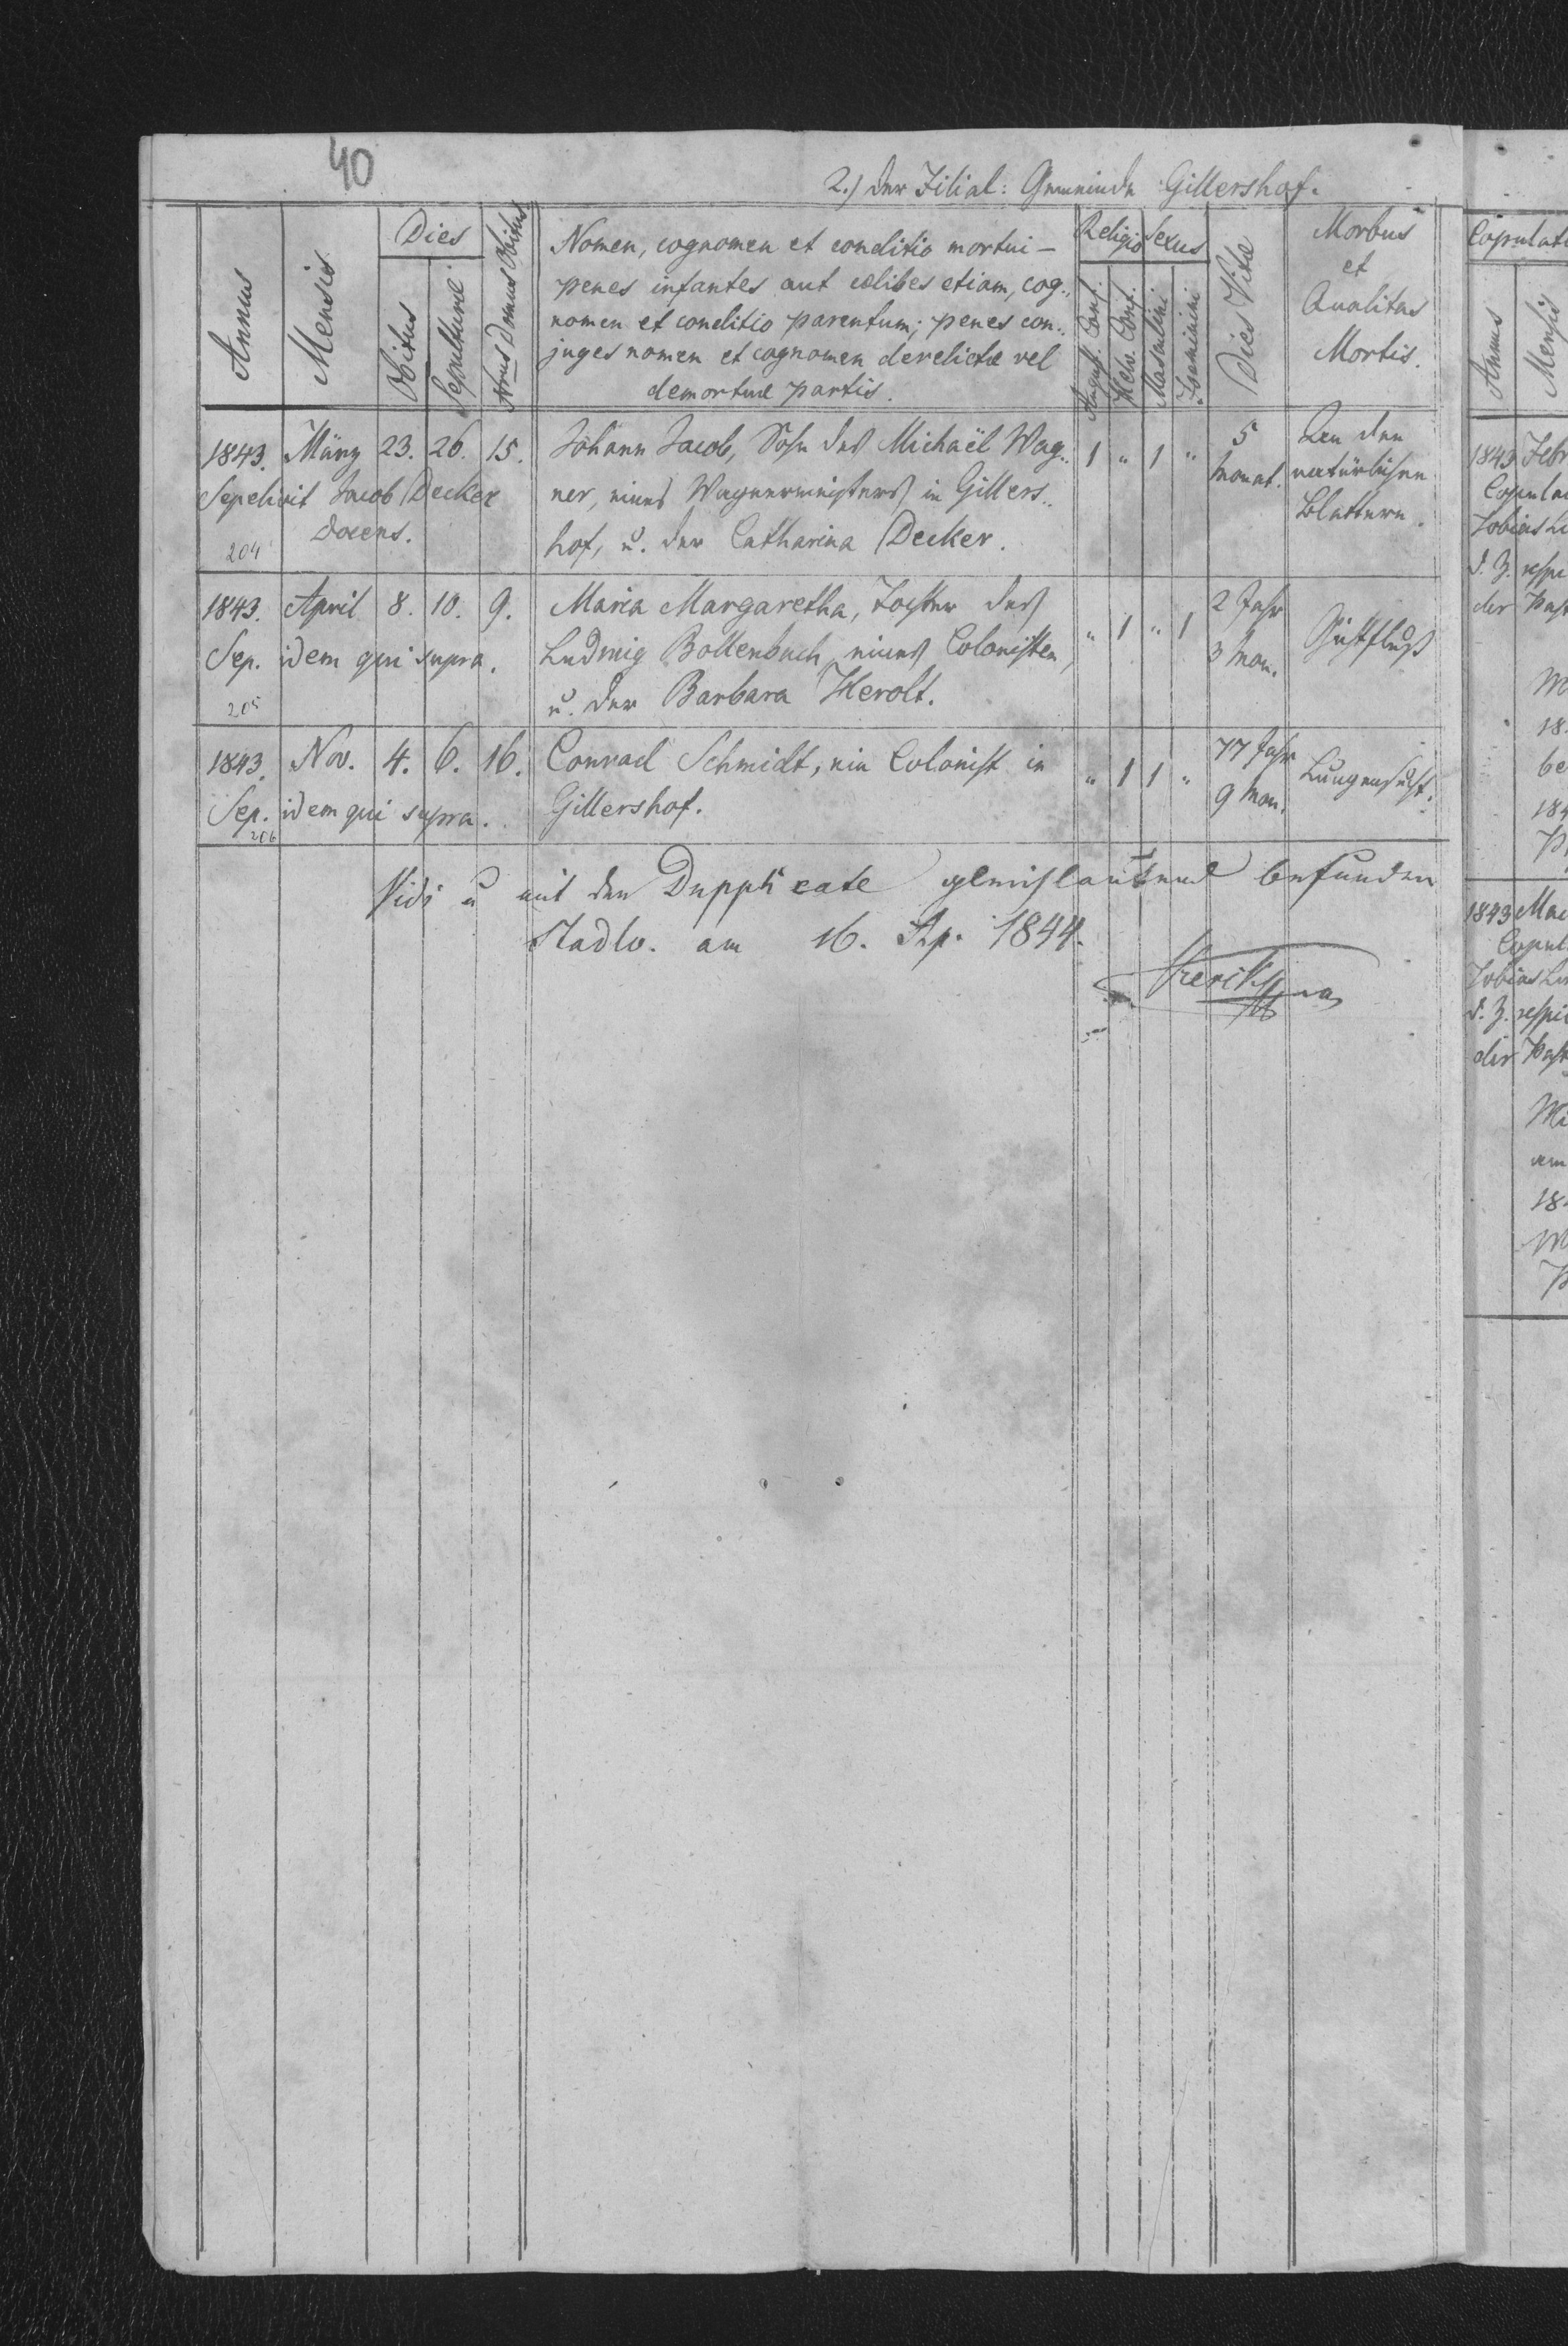 40
2.) der Filial: Gemeinde Gillershof.
Annus
Mensis
Dies
Obitus
Sepulturae
Nrus Domus Obitus
Nomen, cognomen et conditio mortui –
penes infantes aut caelibes etiam, cog„
nomen et conditio parentum; penes con„
juges nomen et cognomen derelictae vel
demortuae partis.
Religio
August. Conf.
Helv. Conf.
Sexus
Masculini
Foeminini
Dies Vitae
Morbus
et
Qualitas
Mortis.
1843. März 23. 26. 15. Johann Jacob, Sohn des Michaël Wag„ 1 " 1 " 5 An den
Sepelivit Jacob Decker ner, eines Wagnermeisters in Gillers„ Monat. natürlichen
docens. hof, u. der Catharina Decker. Blattern.
204
1843. April 8. 10. 9. Maria Margaretha, Tochter des " 1 " 1 2 Jahr
Sep. idem qui supra. Ludwig Bollenbach, eines Colonisten, 3 Mon.
u. der Barbara Herolt.
205
1843. Nov. 4. 6. 16. Conrad Schmidt, ein Colonist in " 1 1 " 77 Jahr Lungensucht.
Sep. idem qui supra. Gillershof. 9 Mon.
206
Vidi u mit dem Dupplicate gleichlautend befunden
Stadlo. am 16. 1844.
Copulati
Annus
Mensis
1843 Febr
Tobias
d. Z.
der
M
18
be
184
P
1843
Copul
Tobias
d. Z.
der
Mi
am
18
M
P